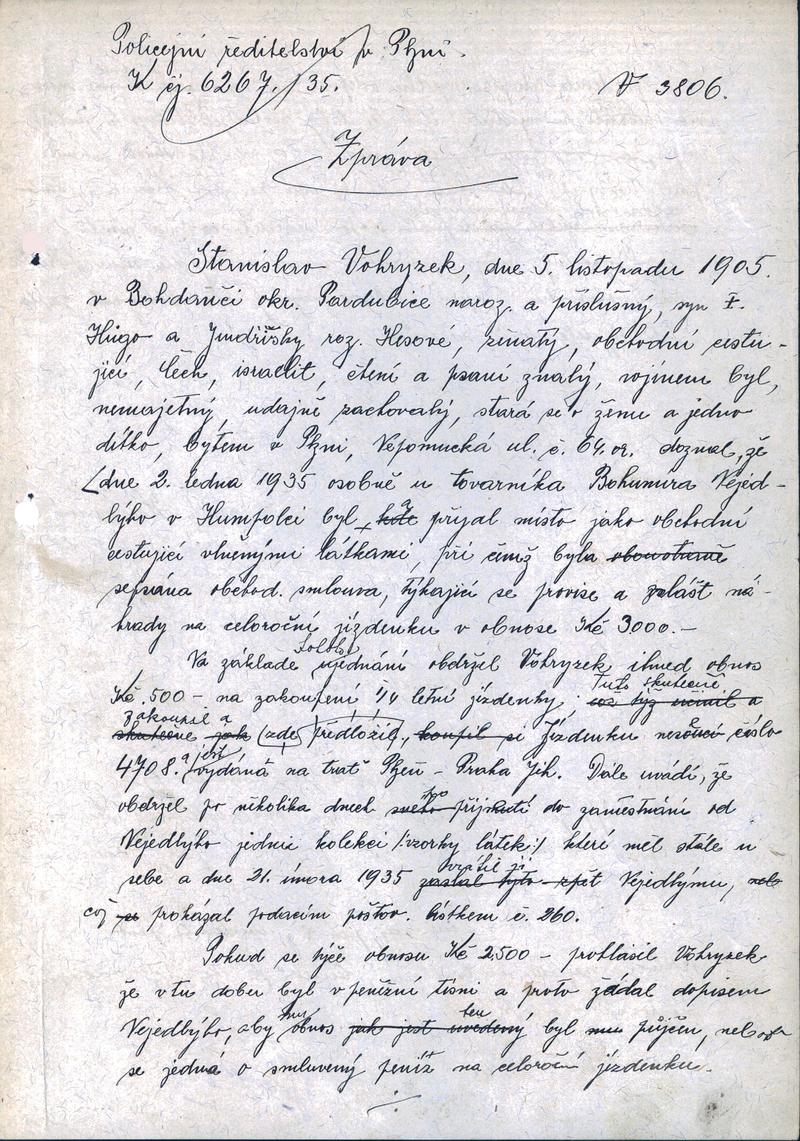 Policejní ředitelství v Plzni.
K čj. 6267./35. V 3806.
Zpráva
Stanislav Vohryzek, dne 5. listopadu 1905.
v Bohdanči okr. Pardubice naroz. a příslušný, syn
Hugo a Jindřišky roz. Hesové, ženatý, obchodní cestu-
jící, Čech, israelit, čtení a psaní znalý, vojínem byl,
nemajetný, udajně zachovalý, stará se o ženu a jedno
dítko, bytem v Plzni, Nepomucká ul. č. 64. doznal, že
dne 2. ledna 1935 osobně u tovarníka Bohumíra Vejed-
lýho v Humpolci byl a přijal místo jako obchodní
cestující vlněnými látkami, při čemž byla
sepsána obchod. smlouva, týkající se provise a zvlášt ná-
hrady na celoroční jízdenku v obnose Kč 3000.-
Na základě tohoto ujednání obdržel Vohryzek ihned obnos
Kč. 500- na zakoupení 1/4 letní jízdenky. Tuto skutečně
zakoupil a (zde předložil, Jízdenku nesoucí číslo
4708. a jest vydaná na trať Plzeň - Praha Jih. Dále uvádí, že
obdržel po několika dnech přijmutí do zaměstnání od
Vejedlýho jednu kolekci /:vzorky látek:/ které měl stále u
sebe a dne 21. února 1935 vrátil ji Vejedlýmu,
což prokázal podacím poštov. lístkem č. 260.
Pokud se týče obnosu Kč 2.500- prohlásil Vohryzek
že v tu dobu byl v peněžní tísni a proto žádal dopisem
Vejedlýho, aby mu obnos ten byl půjčen, neb
se jedná o smluvený peníz na celoroční jízdenku.
./.